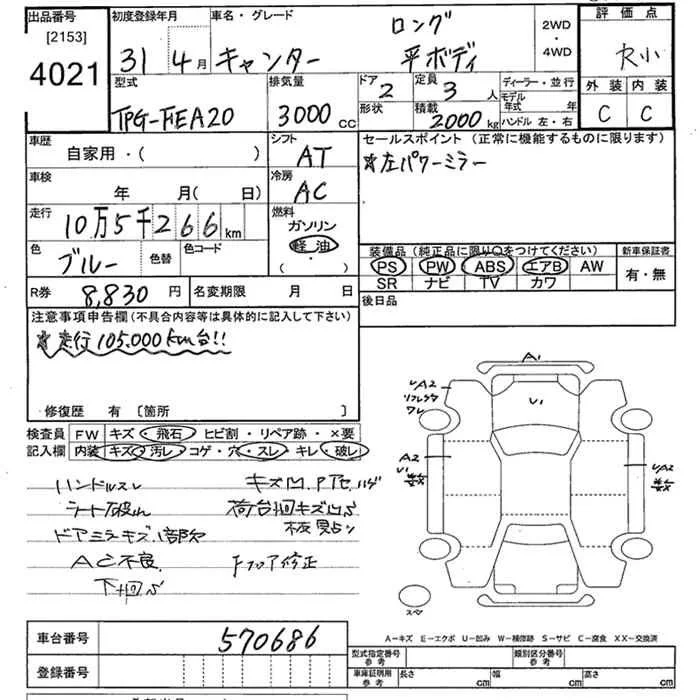 出品番号 [2153] 4021
初度登録年月 31 4月
車名・グレード キャンター ロング 平ボデー
2WD・4WD
評価点
外装 内装
C C
型式 TPG-FEA20
排気量 3000 CC
ドア 2
形状
定員 3 人
積載 2000 kg
ディーラー・並行
モデル年式 年
ハンドル 左・右
車歴 自家用・( )
シフト AT
車検 年 月( 日)
冷房 AC
走行 10万5千266 km
燃料 ガソリン 軽油 ( )
色 ブルー 色替 色コード
セールスポイント (正常に機能するものに限ります)
☆左パワーミラー
装備品 (純正品に限り○をつけてください) 新車保証書
PS PW ABS エアB AW 有・無
SR ナビ TV カワ
R券 8,830 円 名変期限 月 日
後日品
注意事項申告欄 (不具合内容等は具体的に記入して下さい)
☆走行105,000km台!!
修復歴 有 [箇所 ]
検査員記入欄 FW キズ・飛石・ヒビ割・リペア跡・×要
内装 キズ・汚レ・コゲ・穴・スレ・キレ・破レ
ハンドルスレ
シート破れ
ドアミラーキズ1部欠
AC不良
下回S
荷台回キズ凹S
板貼り
Fフロア修正
A1
U1
UA2
リフレクタ
ワレ
A2
U1
UA2
スペア
A-キズ E-エクボ U-凹み W-補修跡 S-サビ C-腐食 XX-交換済
車台番号 570686
登録番号
型式指定番号 参考 類別区分番号 参考
車庫証明用 参考 長さ cm 幅 cm 高さ cm